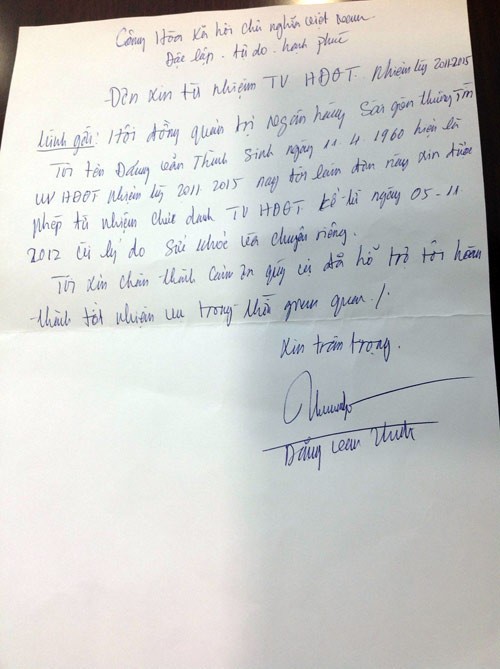 Cộng Hòa Xã hội chủ nghĩa Việt Nam
Độc lập - tự do - hạnh phúc
Đơn xin từ nhiệm TV HĐQT. Nhiệm kỳ 2011-2015
Kính gửi: Hội đồng quản trị Ngân hàng Sài gòn thương Tín
Tôi tên Đặng Văn Thành Sinh ngày 11.4.1960 hiện là
UV HĐQT Nhiệm kỳ 2011-2015 nay tôi làm đơn này xin được
phép từ nhiệm chức danh TV HĐQT kể từ ngày 05-11
2012 vì lý do sức khỏe và chuyện riêng.
Tôi xin chân thành cảm ơn quý vị đã hỗ trợ tôi hoàn
thành tốt nhiệm vụ trong thời gian qua./.
Xin trân trọng.
Đặng Văn Thành